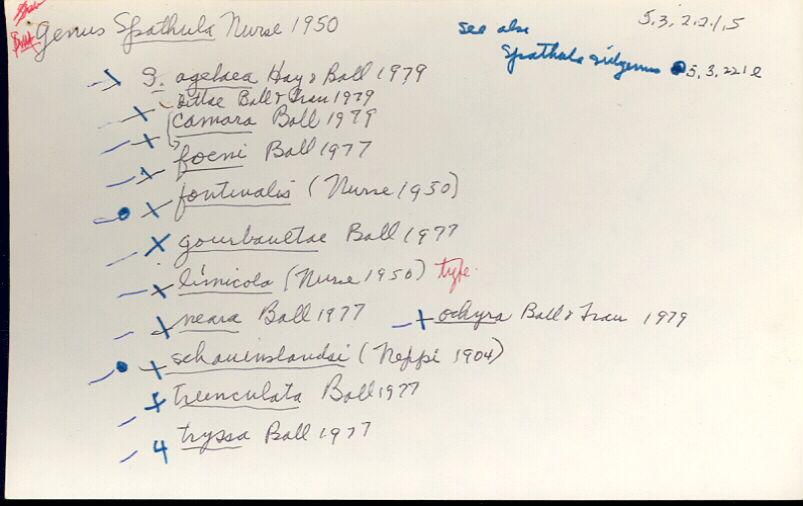 Genus Spathula Nurse 1950
5.3.2.2.1.5
see also
Spathula subgenus 5.3.221e
S. agelaea Hay & Ball 1979
Ball & Frau 1979
camara Ball 1979
foeni Ball 1977
fontinalis (Nurse 1950)
gourbaultae Ball 1977
limicola (Nurse 1950) type.
neara Ball 1977
ochyra Ball & Frau 1979
schauinslandi (Neppi 1904)
truncculata Ball 1977
tryssa Ball 1977